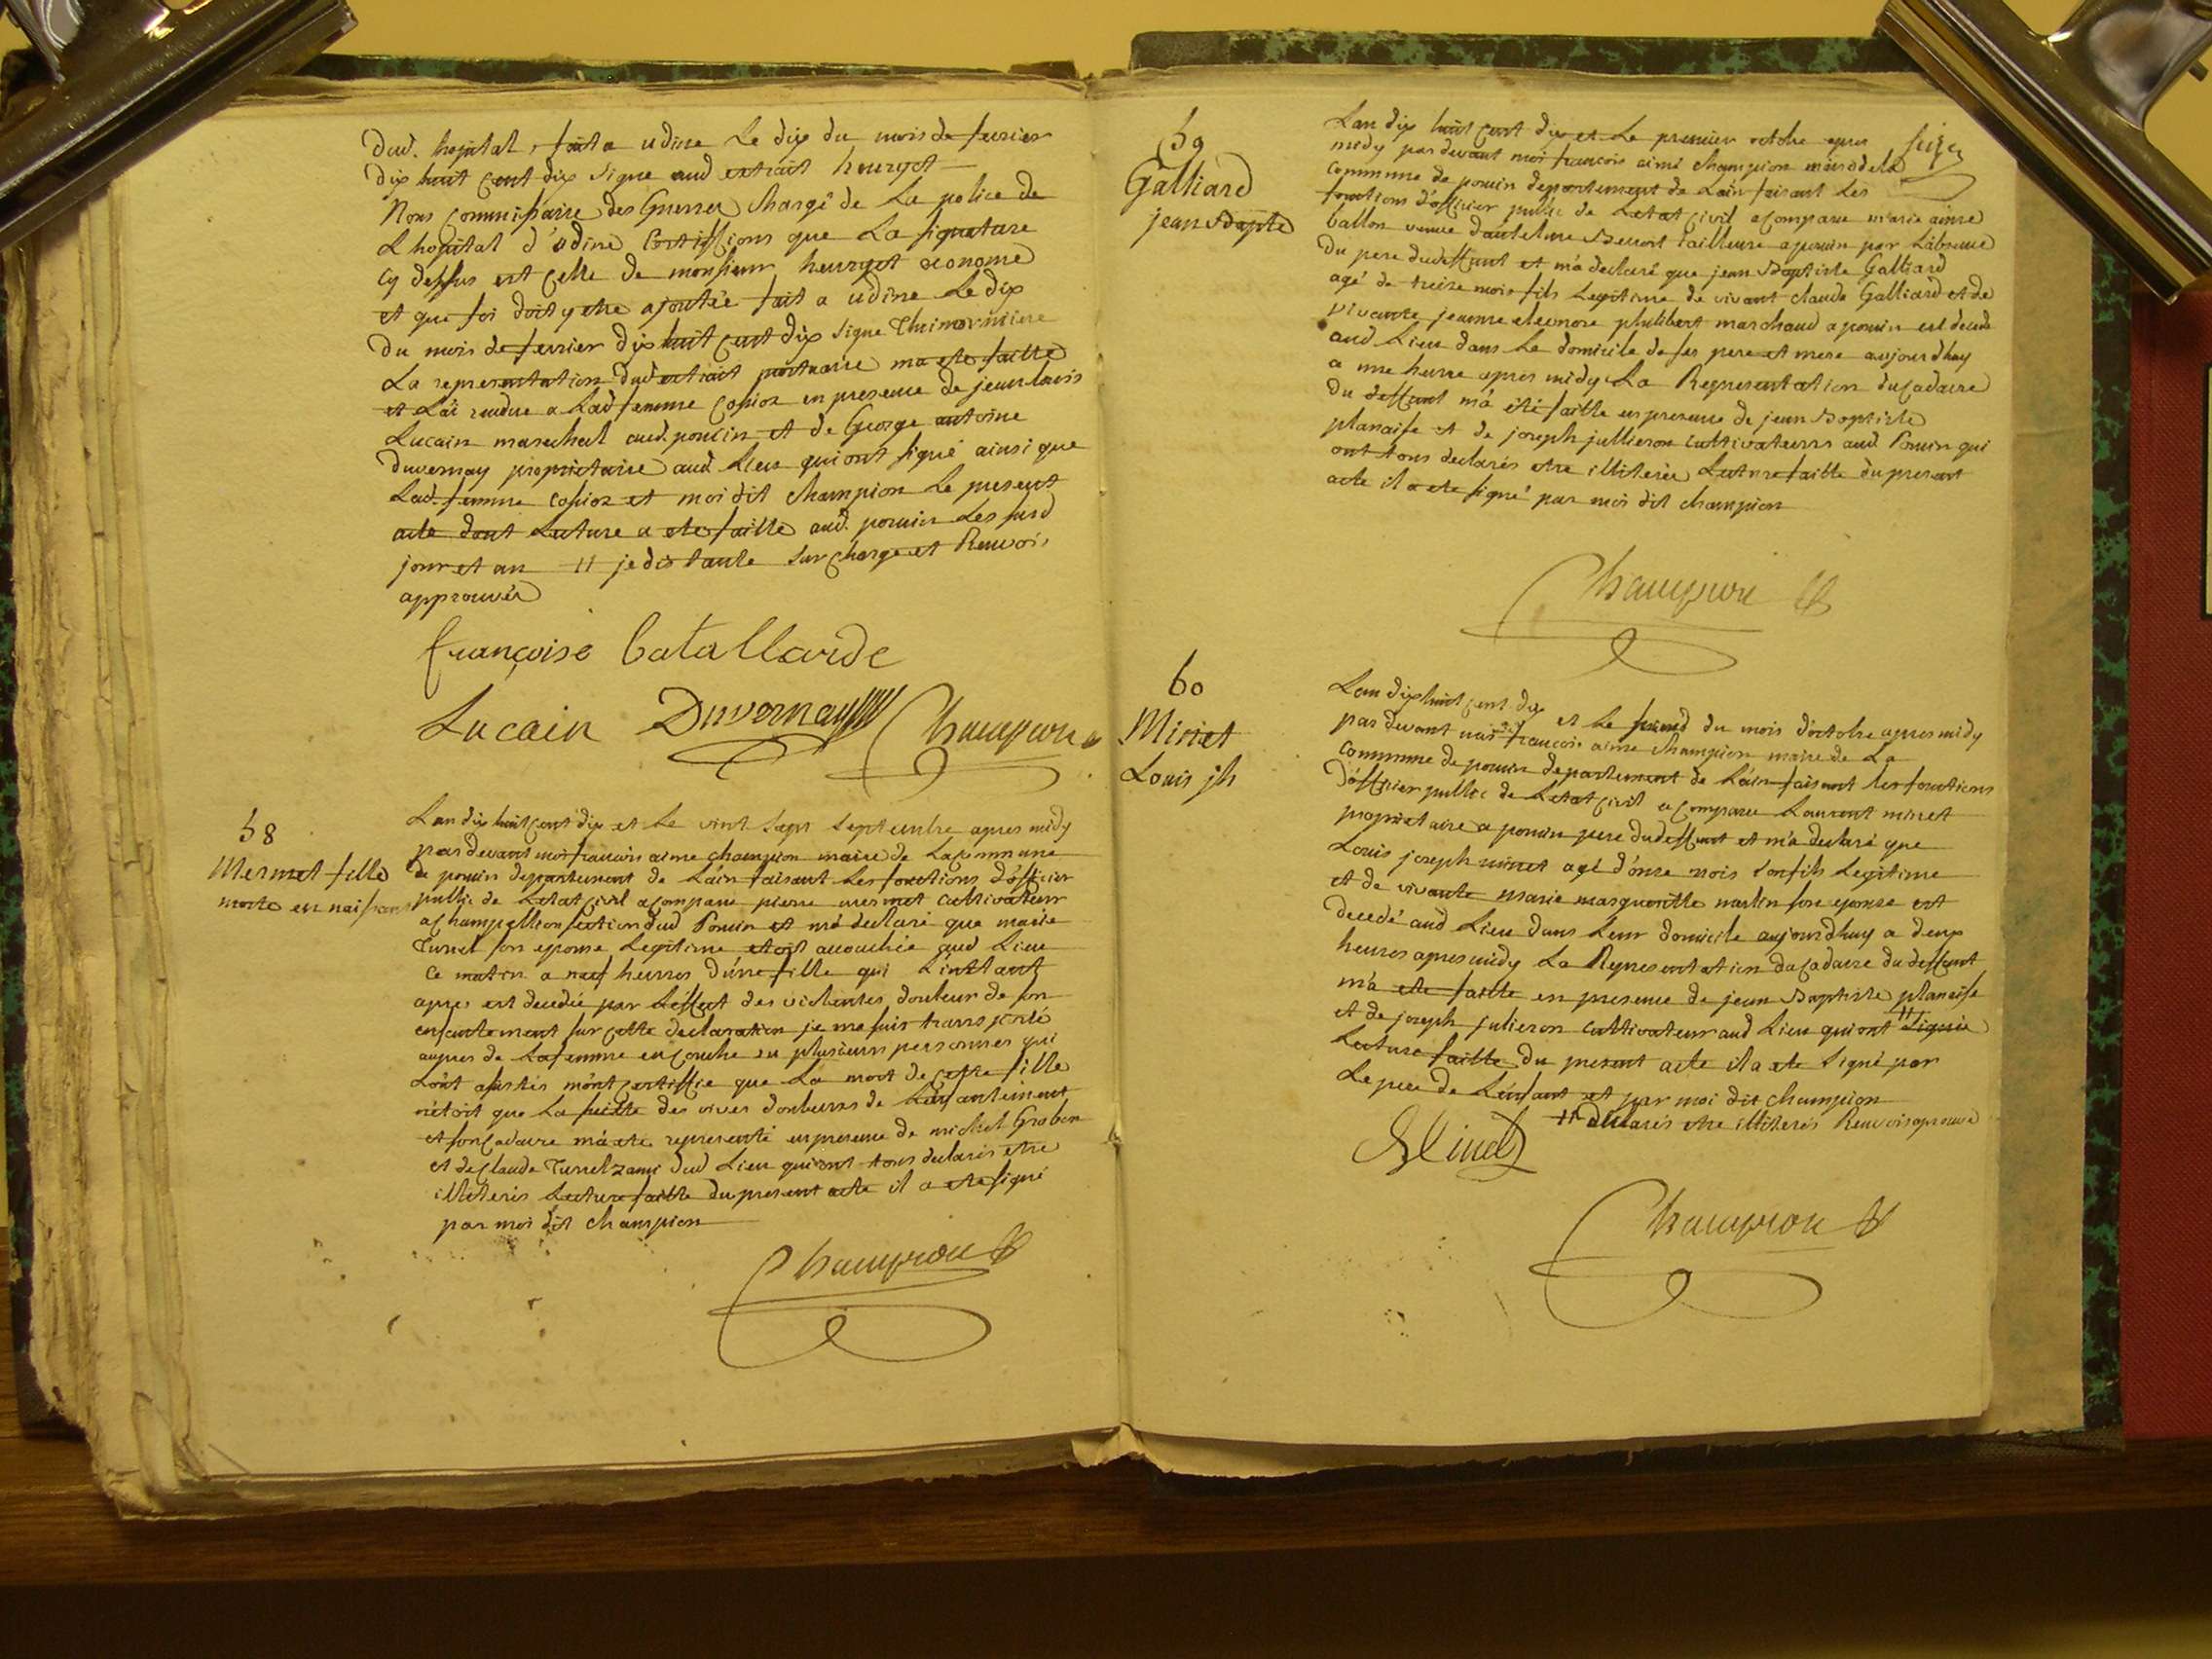 dud. hopital, fait a udine Le dix du mois de fevrier
dix huit cent dix signe aud extrait heurget
Nous commissaire des Guerres Chargé de La police de
L hopital d'udine Certiffions que La signature
cy dessus est Celle de monsieur heurget econome
et que foi doit y etre ajoutée fait a udine Le dix
du mois de fevrier dix huit cent dix signe
La representation dud extrait mortuaire ma ete faitte
et L'ai rendue a Lad femme Cosion en presence de jean Louis
Lucain marechal aud. poncin et de George antoine
Duvernay proprietaire aud Lieu qui ont signé ainsi que
Lad. femme Cosion et moi dit champion Le present
acte dont Lecture a ete faitte aud. poncin Les susd
jour et an 11 je dis tante surcharge et Renvois
approuvée
françoise batallarde
Lucain Duvernay Champion
58
Mermet fille
morte en naissant
L an dix huit cent dix et Le vint sept septembre apres midy
par devant moi francois aime champion maire de La commune
de poncin departement de L'ain faisant Les fonctions d'officier
public de Letat civil a comparu pierre mermet cultivateur
a champellion section dud Poncin et m'a declaré que marie
Turrel son epouse Legitime etoit accouchée aud Lieu
Ce matin a neuf heures d'une fille qui L'instant
apres est decedée par L'effect des violentes douleur de son
enfantement sur cette declaration je me suis transporté
aupres de La femme en couche ou plusieurs personnes qui
L'ont assistés m'ont certiffie que La mort de cette fille
n'etoit que La suitte des vives douleurs de L'enfantement
et son cadavre m'a ete representé en presence de michel Graben
et de Claude Turrel dud Lieu qui ont tous declarés etre
illiterés Lecture faitte du present acte il a ete signé
par moi dit champion
Champion
59
Galliard
jean Bapte
seize
L an dix huit cent dix et Le premier octobre apres
midy par devant moi francois aimé champion maire de La
Commune de poncin departement de L'ain faisant Les
fonctions d'officier public de Letat civil a comparu marie aime
ballon veuve Benoit tailleuse a poncin par L'absence
du pere du deffunt et m'a declaré que jean Baptiste Galliard
agé de treize mois fils Legitime de vivant claude Galliard et de
vivante jeanne eleonore philibert marchand a poncin est decedé
aud Lieu dans Le domicile de ses pere et mere aujourdhuy
a une heure apres midy La Representation du Cadavre
du deffunt m'a été faitte en presence de jean Baptiste
planaise et de joseph jullieron Cultivateurs aud Poncin qui
ont tous declarés etre illiterés Lecture faitte du present
acte il a ete signé par moi dit champion
Champion
60
Miniet
Louis jh
L an dix huit cent dix et Le second du mois d'octobre apres midy
par devant moi francois aime champion maire de La
Commune de poncin departement de L'ain faisant les fonctions
d'officier public de Letat civil a comparu Laurent minet
proprietaire a poncin pere du deffunt et m'a declaré que
Louis joseph minet agé d'onze mois son fils Legitime
et de vivante marie margueritte martin son epouse est
decedé aud Lieu dans Leur domicile aujourdhuy a deux
heures apres midy La Representation du cadavre du deffunt
m'a ete faitte en presence de jean Baptiste planaise
et de joseph julieron cultivateur aud Lieu qui ont 11 signée
Lecture faitte du present acte il a ete signé par
Le pere de L'enfant et par moi dit champion
11 declarés etre illiterés Renvoi aprouvé
Minet
Champion